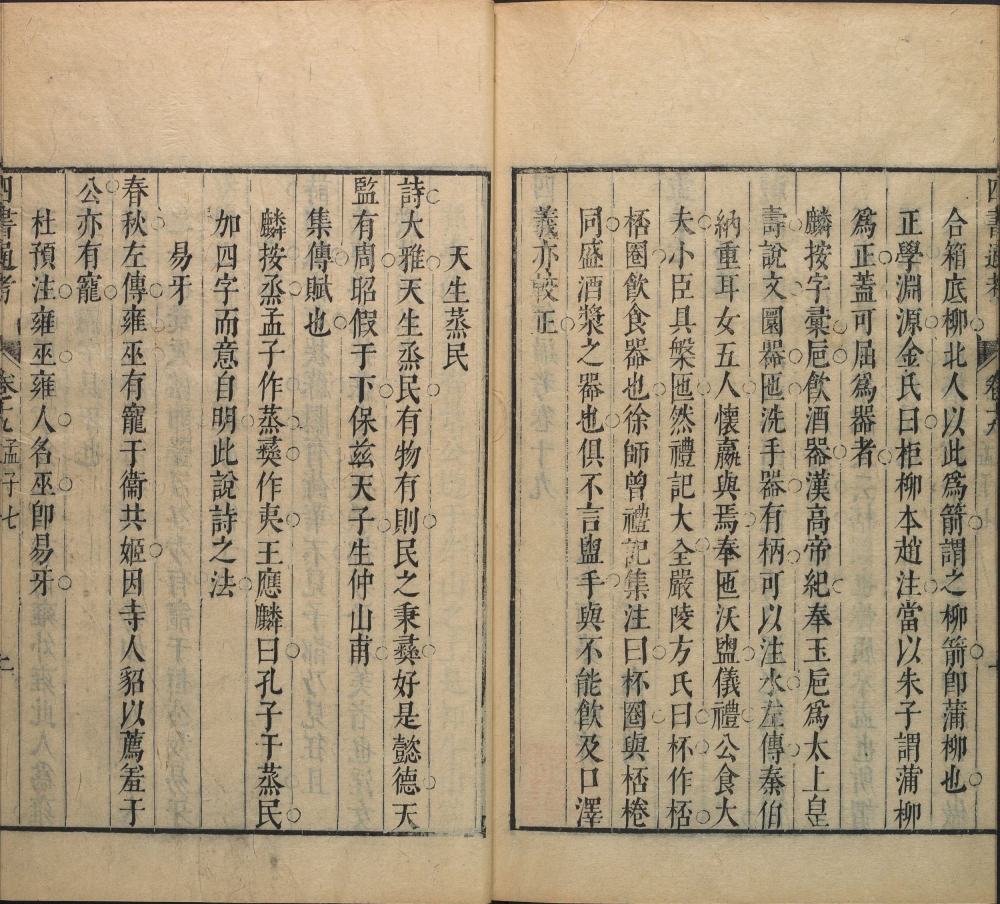 四書通考
卷十九
合箱底柳北人以此爲箭謂之柳箭卽蒲柳也
正學淵源金氏曰柜柳本趙注當以朱子謂蒲柳
爲正蓋可屈爲器者
麟按字彙巵飲酒器漢高帝紀奉玉巵爲太上皇
壽說文圜器匜洗手器有柄可以注水左傳秦伯
納重耳女五人懷嬴與焉奉匜沃盥儀禮公食大
夫小臣具槃匜然禮記大全嚴陵方氏曰杯作桮
桮圈飲食器也徐師曾禮記集注曰杯圈與桮棬
同盛酒漿之器也俱不言盥手與不能飲及口澤
義亦較正
天生蒸民
詩大雅天生烝民有物有則民之秉彝好是懿德天
監有周昭假于下保兹天子生仲山甫
集傳賦也
麟按烝孟子作蒸彞作夷王應麟曰孔子于蒸民
加四字而意自明此說詩之法
易牙
春秋左傳雍巫有寵于衞共姬因寺人貂以薦羞于
公亦有寵
杜預注雍巫雍人名巫卽易牙
四書通考
卷十九
孟子七
二